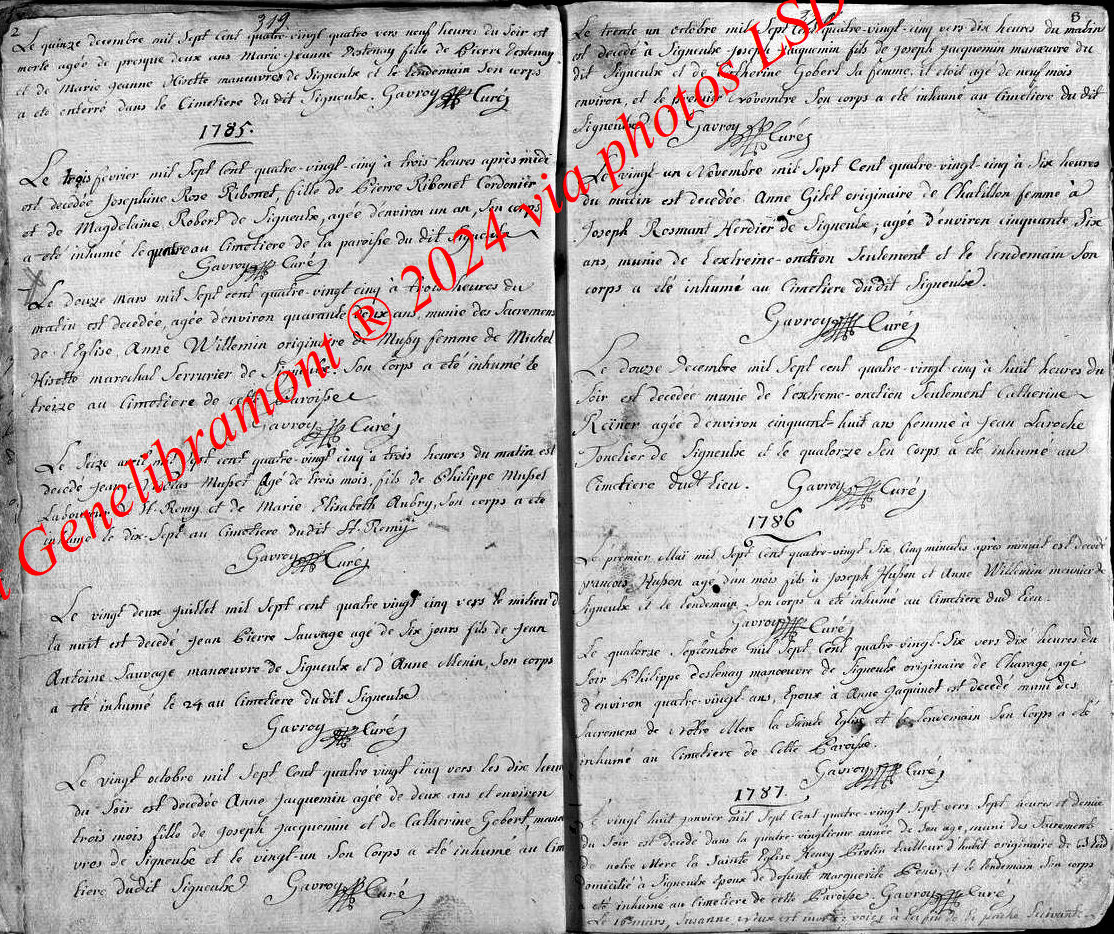 2
319
Le quinze decembre mil Sept Cent quatre-vingt quatre vers neuf heures du Soir est
morte agée de presque deux ans Marie-Jeanne Destenay fille de Pierre Destenay
et de Marie Jeanne Hisette manœuvres de Signeulx et le lendemain Son corps
a ete enterré dans le Cimetiere du dit Signeulx. Gavroy Curé
1785.
Le trois fevrier mil Sept Cent quatre-vingt-cinq à trois heures après midi
est decedée Josephine Rose Ribonet, fille de Pierre Ribonet Cordonier
et de Magdelaine Robert de Signeulx, agée d'environ un an, Son corps
a été inhumé le quatre au Cimetiere de la paroisse du dit Signeulx
Gavroy Curé
Le douze mars mil Sept cent quatre-vingt-cinq à trois heures du
matin est decedée, agée d'environ quarante deux ans, munie des Sacremens
de l'Eglise, Anne Willemin originaire de Mussy femme de Michel
Hisette marechal Serrurier de Signeulx. Son Corps a été inhumé le
treize au Cimetiere de cette Paroisse
Gavroy Curé
Le Seize avril mil Sept cent quatre-vingt cinq à trois heures du matin est
decedé Jean Nicolas Musset agé de trois mois, fils de Philippe Musset
Laboureur à St. Remy et de Marie Elisabeth Aubry, Son corps a été
inhumé le dix-Sept au Cimetiere dudit St. Remy
Gavroy Curé
Le vingt deux Juillet mil Sept cent quatre vingt cinq vers le milieu d
la nuit est decedé Jean Pierre Sauvage agé de Six jours fils de Jean
Antoine Sauvage manœuvre de Signeulx et d'Anne Menin, Son corps
a été inhumé le 24 au Cimetiere dudit Signeulx
Gavroy Curé
Le vingt octobre mil Sept Cent quatre vingt cinq vers les dix heur
du Soir est decedée Anne Jacquemin agée de deux ans et environ
trois mois fille de Joseph Jacquemin et de Catherine Gobert, manœu
vres de Signeulx et le vingt-un Son Corps a été inhumé au Cim
tiere dudit Signeulx Gavroy Curé
3
Le trente un octobre mil Sept Cent quatre-vingt-cinq vers dix heures du matin
est decedé à Signeulx Joseph Jacquemin fils de Joseph Jacquemin manœuvre du
dit Signeulx et de Catherine Gobert Sa femme, il étoit agé de neuf mois
environ, et le premier Novembre Son corps a été inhumé au Cimetiere du dit
Signeulx Gavroy Curé
Le vingt-un Novembre mil Sept Cent quatre-vingt-cinq à Six heures
du matin est decedée Anne Gilet originaire de Chatillon femme à
Joseph Rosmant Herdier de Signeulx, agée d'environ cinquante Six
ans, munie de l'extreme-onction Seulement et le lendemain Son
corps a été inhumé au Cimetiere dudit Signeulx.
Gavroy Curé
Le douze Decembre mil Sept cent quatre-vingt-cinq à huit heures du
Soir est decedée munie de l'extreme-onction Seulement Catherine
Reiner agée d'environ cinquant-huit ans femme à Jean Laroche
Tonelier de Signeulx et le quatorze Son Corps a été inhumé au
Cimetiere dudt Lieu. Gavroy Curé
1786
Le premier Mai mil Sept Cent quatre-vingt Six Cinq minutes après minuit est decedé
françois Husson agé d'un mois fils à Joseph Husson et Anne Willemin meunier de
Signeulx et le lendemain Son corps a été inhumé au Cimetiere dud Lieu.
Gavroy Curé
Le quatorze Septembre mil Sept Cent quatre-vingt-Six vers dix heures du
Soir Philippe destenay manœuvre de Signeulx originaire de Charage agé
d'environ quatre-vingt ans, Epoux à Anne Jaquinet est decedé muni des
Sacremens de Notre Mere la Sainte Eglise et le lendemain Son Corps a été
inhumé au Cimetiere de Cette Paroisse.
Gavroy Curé
1787.
Le vingt huit janvier mil Sept Cent quatre-vingt Sept vers Sept heures et demie
du Soir est decedé dans la quatre-vingtieme année de Son age, muni des Sacrements
de notre Mere la Sainte Eglise Henry Pirotin tailleur d'habit originaire de
domicilié à Signeulx Epoux de defunte marguerite et le lendemain Son corps
a été inhumé au Cimetiere de cette Paroisse. Gavroy Curé
Le 16 mars, Susanne est voiés à la fin de la page Suivante
Genelibramont ® 2024 via photos LSD